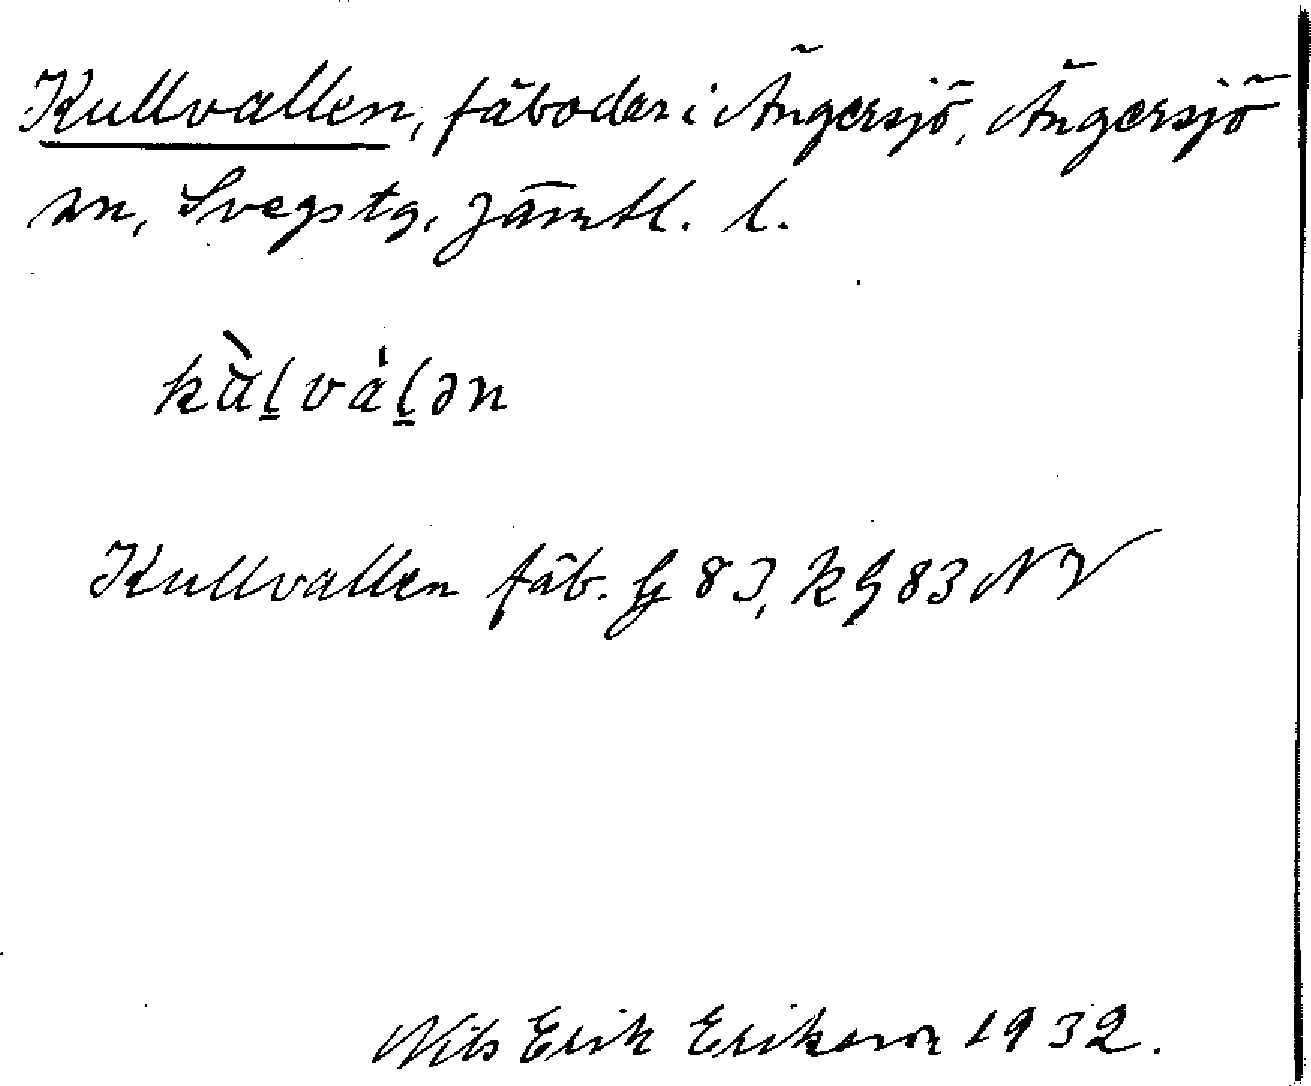 Kullvallen, fäboder i Ängersjö, Ängersjö
sn, Svegs tg, Jämtl. l.
kùḻvȧḻən
Kullvallen fäb. Gg 83, k G 83 NV
Nils Erik Eriksson 1932.